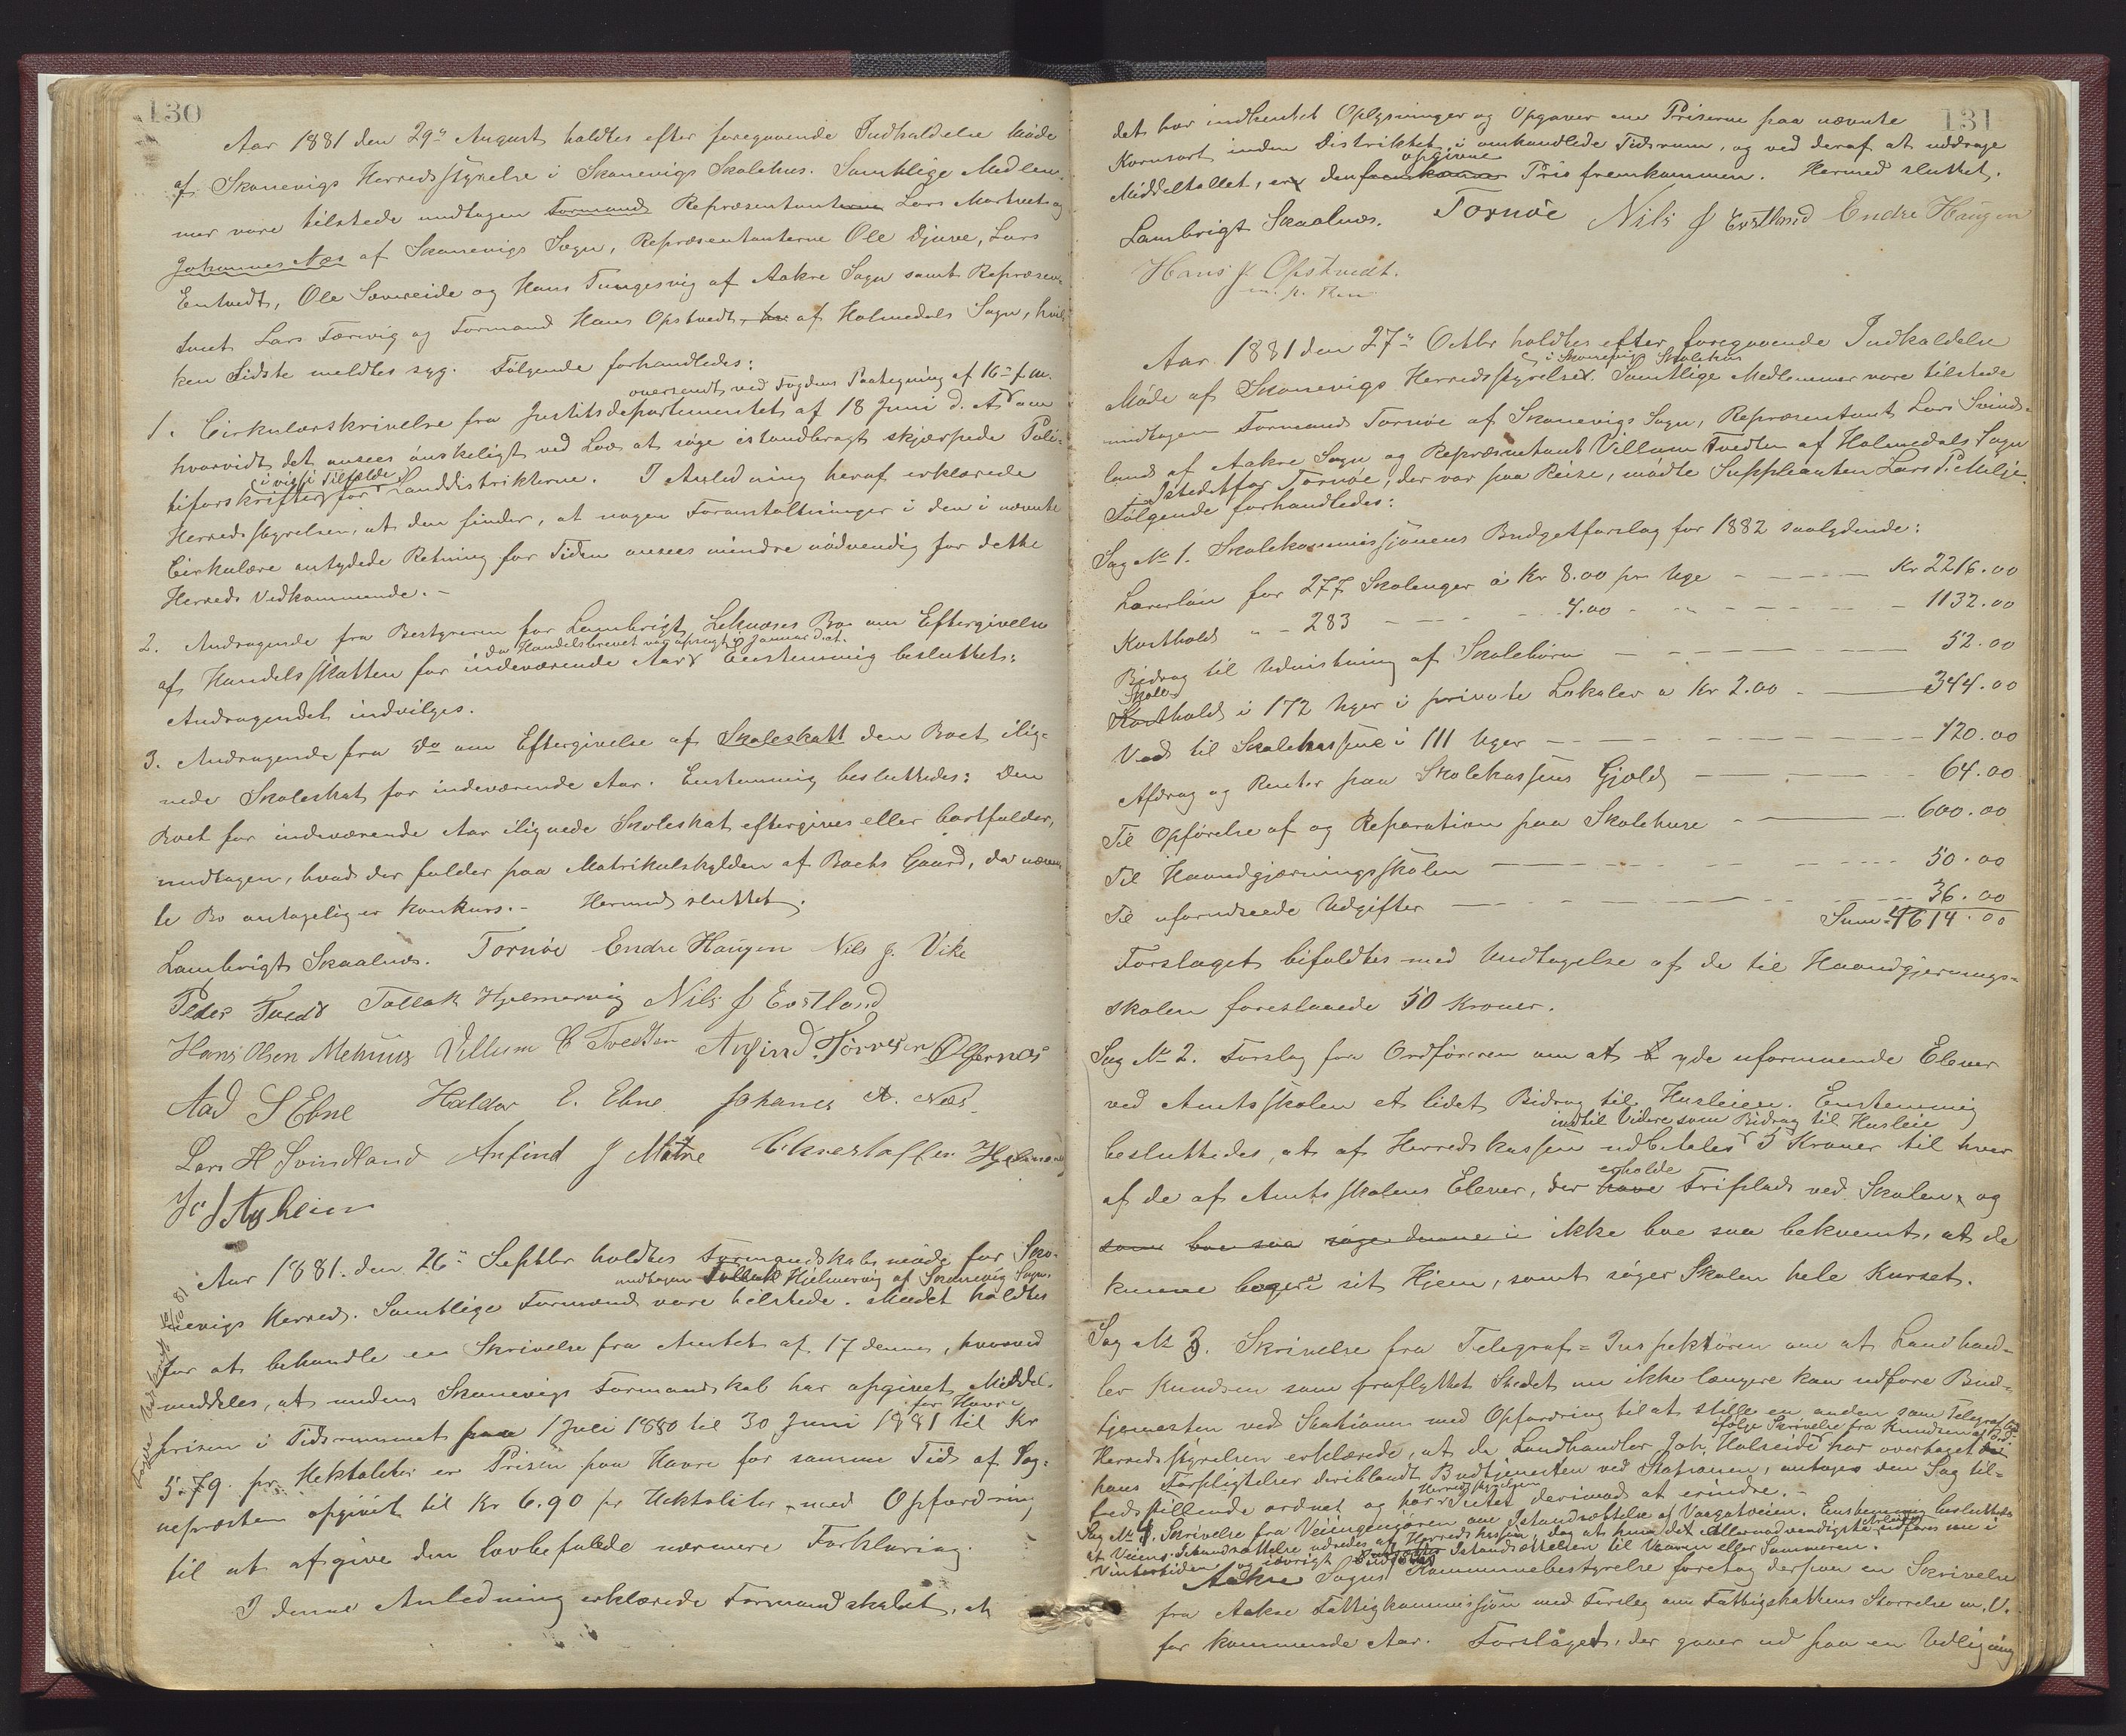 130
Aar 1881 den 29de August holdtes efter foregaaende Indkaldelse Møde
af Skonevigs Herredsstyrelse i Skonevigs Skolehus. Samtlige Medlem-
mer vare tilstede undtagen Formand Repræsentanterne Lars Martveit og
Johannes Næs af Skonevigs Sogn, Repræsentanterne Ole Djuve, Lars
Entvedt, Ole Sævereide og Hans Tungesvig af Aakre Sogn samt Repræsen-
tant Lars Færevig og Formand Hans Opstvedt, af Holmedals Sogn, hvil-
ken Sidste meldtes syg. Følgende forhandledes:
oversendt ved Fogdens Paategning af 16de f.M.
1. Cirkulærskrivelse fra Justitsdepartementet af 18 Juni d. A. om
hvorvidt det ansees ønskeligt ved Lov at søge istandbragt skjærpede Poli-
i visse Tilfælde
tiforskrifter for Landdistrikterne. I Anledning heraf erklærede
Herredsstyrelsen, at den finder, at nogen Foranstaltninger i den i nævnte
Cirkulære antydede Retning for Tiden ansees mindre nødvendig for dette
Herreds Vedkommende.-
2. Andragende fra Bestyreren for Lambrigt Leknæses Bo om Eftergivelse
da Handelsbrevet var opsagt i Januar d. A.
af Handelsskatten for indeværende Aar. Eenstemmig besluttet:
Andragendet indvilges.
3. Andragende fra Do om Eftergivelse af Skoleskatt den Boet ilig-
nede Skoleskat for indeværende Aar. Enstemmig besluttedes: Den
Boet for indeværende Aar ilignede Skoleskat eftergives eller bortfalder,
undtagen, hvad der falder paa Matrikulskylden af Boets Gaard, da nævn-
te Bo antagelig er Konkurs.- Hermed sluttet.
Lambrigt Skaalnæs. Tornøe Endre Haugen Nils J. Vike
Peder Tvedt Tollak Hjelmervig Nils J Østland
Hans Olsen Mehuus Villum C Tvedten Anfind Torresen Ølfernæs
Aad S Ebne Haldor E. Ebne Johanes A. Næs
Lars H Svindland Anfind J Matre Chrestoffer Hjelmerv
Jo J Ayheim
Aar 1881. den 26de Septbr holdtes Formandskabsmøde for Sko-
undtagen Tollak Hjelmervig af Skonevig Sogn.
nevigs Herred. Samtlige Formænd vare tilstede. Mødet holdtes
for at behandle en Skrivelse fra Amtet af 17 dennes, hvorved
meddeles, at medens Skonevigs Formandskab har opgivet Middel-
for Havre
prisen i Tidsrummet fra 1 Juli 1880 til 30 Juni 1881 til Kr
5.79 pr Hektoliter er Prisen paa Havre for samme Tid af Sog-
nepræsten opgivet til Kr 6.90 pr Hektoliter, med Opfordring
til at afgive den lovbefalede nærmere Forklaring.
I denne Anledning erklærede Formandskabet, at
131
det har indhentet Oplysninger og Opgaver om Priserne paa nævnte
Kornsort inden Distriktet i omhandlede Tidsrum, og ved deraf at uddrage
opgivne
Middeltallet, er den fremkomne Pris fremkommen. Hermed sluttet.
Lambrigt Skaalnæs. Tornøe Nils J Østland Endre Haugen
Hans J. Opstvedt.
m. p. Pen
Aar 1881 den 27de Octbr holdtes efter foregaaende Indkaldelse
i Skonevigs Skolehus
Møde af Skonevigs Herredsstyrelse. Samtlige Medlemmer vare tilstede
undtagen Formand Tornøe af Skonevigs Sogn, Repræsentant Lars Svind-
land af Aakre Sogn og Repræsentant Villum Tvedten af Holmedals Sogn
Istedetfor Tornøe, der var paa Reise, mødte Suppleanten Lars P. Milje.
Følgende forhandledes:
Sag No 1. Skolekommissjonens Budgetforslag for 1882 saalydende:
Lærerløn for 277 Skoleuger à Kr 8.00 pr Uge - Kr 2216.00
Kosthold " - 283 - 4.00 - 1132.00
Bidrag til Udvistning af Skolebørn - 52.00
Skole
Kosthold i 172 Uger i private Lokaler a Kr 2.00 - 344.00
Ved til Skolehusene i 111 Uger - 120.00
Afdrag og Renter paa Skolekassens Gjæld - 64.00
Til Opførelse af og Reparation paa Skolehuse - 600.00
Til Haandgjærningsskolen - 50.00
Til uforudseede Udgifter - 36.00
Sum 4614.00
Forslaget bifaldtes med Undtagelse af de til Haandgjernings-
skolen foreslaaede 50 Kroner.
Sag No 2. Forslag fra Ordføreren om at yde uformuende Elever
ved Amtsskolen et lidet Bidrag til Husleien. Enstemmig
indtil Videre som Bidrag til Husleie
besluttedes, at af Herredskassen udbetales 5 Kroner til hver
erholde
af de af Amtsskolens Elever, der have Friplads ved Skolen, og
som boe saa søge denne i ikke boe saa bekvemt, at de
kunne logere i sit Hjem, samt søger Skolen hele Kurset.
Sag No 3. Skrivelse fra Telegraf-Inspektøren om at Landhand-
ler Knudsen som fraflyttet Stedet nu ikke længere kan udføre Bud-
tjenesten ved Stationen med Opfordring til at stille en anden som Telegrafbud
ifølge Skrivelse fra Knudsen af
Herredsstyrelsen erklærede, at da Landhandler Joh. Halleide har overtaget
hans Forpligtelser deriblandt Budtjenesten ved Stationen, antages den Sag til-
Herredsstyrelsen
fredsstillende ordnet og har Intet derimod at erindre.-
Sag No 4. Skrivelse fra Veiingeniøren om Istandsættelse af Vaagatveien. Enstemmig besluttedes
at Veiens Istandsættelse udredes af Herredskassen, dog at kun det Allernødvendigste udføres nu i
Vintertiden og iøvrigt Istandsættelsen til Vaaren eller Sommeren.
Aakre Sogns Kommunebestyrelse foretog derpaa en Skrivelse
fra Aakre Fattigkommissjon med Forslag om Fattigskattens Størrelse m. V.
for kommende Aar. Forslaget, der gaaer ud paa en Udligning